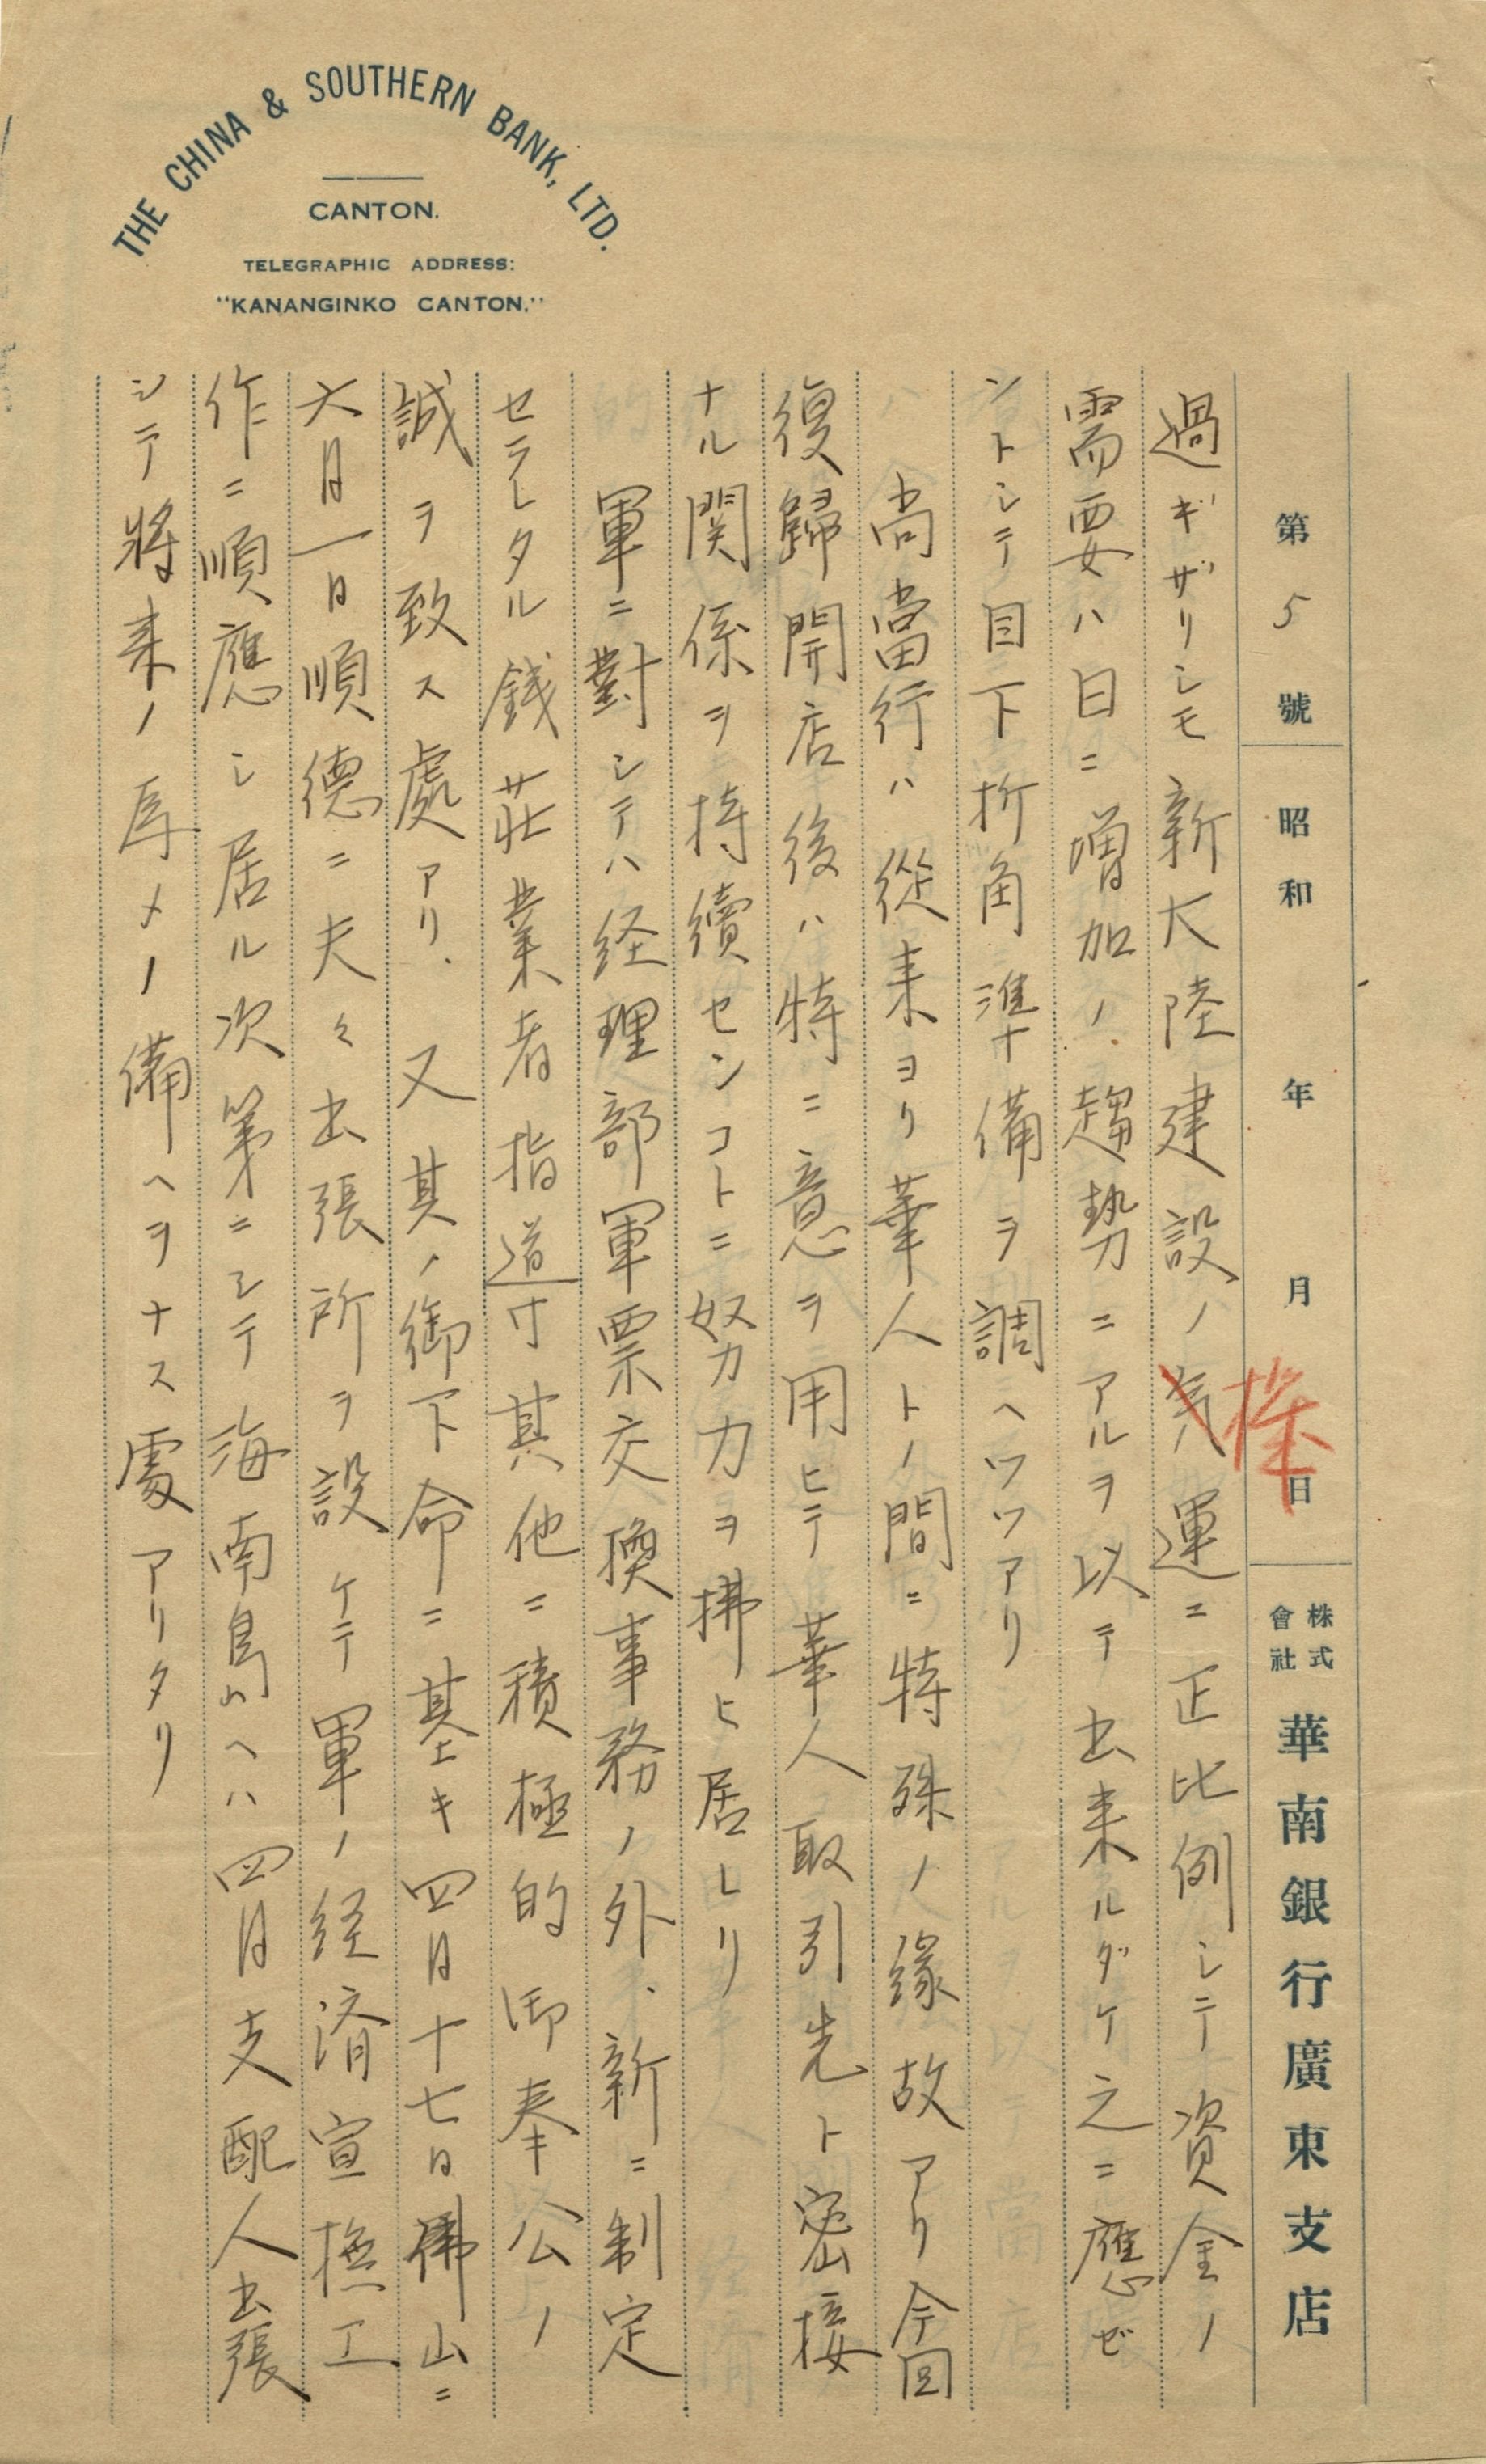 THE CHINA & SOUTHERN BANK, LTD.
CANTON.
TELEGRAPHIC ADDRESS:
"KANANGINKO CANTON."
第 5 號 昭和 年 月 日 株式會社 華南銀行廣東支店
過ギザリシモ新大陸建設ノ気運ニ正比例シテ資金ノ
機
需要ハ日ニ増加ノ趨勢ニアルヲ以テ出来ルダケ之ニ應ゼ
ントシテ目下折角準備ヲ調ヘツツアリ
尚當行ハ從来ヨリ華人トノ間ニ特殊ノ縁故アリ今回
復歸開店後ハ特ニ意ヲ用ヒテ華人取引先ト密接
ナル関係ヲ持續センコトニ努力ヲ拂ヒ居レリ
軍ニ對シテハ経理部軍票交換事務ノ外、新ニ制定
セラレタル銭莊業者指導其他ニ積極的御奉公ノ
誠ヲ致ス處アリ、又其ノ御下命ニ基キ四月十七日佛山ニ
六月一日順德ニ夫々出張所ヲ設ケテ軍ノ経済宣撫工
作ニ順應シ居ル次第ニシテ海南島ヘハ四月支配人出張
シテ將来ノ為メノ備ヘヲナス處アリタリ